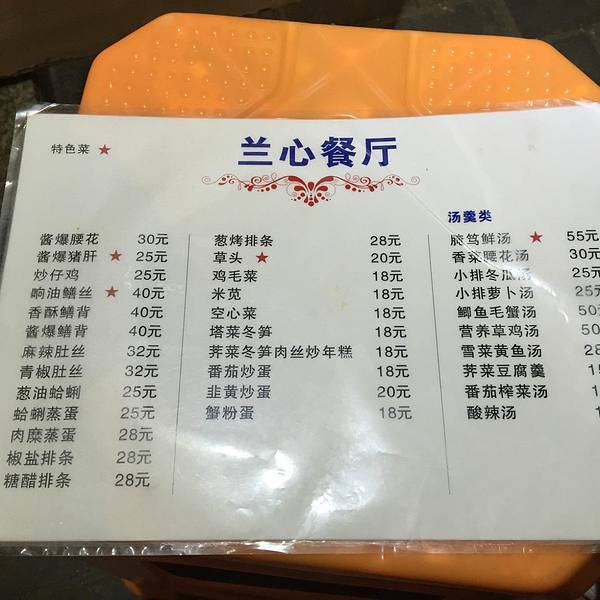 特色菜 ★
兰心餐厅
酱爆腰花 30元
酱爆猪肝 ★ 25元
炒仔鸡 25元
响油鳝丝 ★ 40元
香酥鳝背 40元
酱爆鳝背 40元
麻辣肚丝 32元
青椒肚丝 32元
葱油蛤蜊 25元
蛤蜊蒸蛋 25元
肉糜蒸蛋 28元
椒盐排条 28元
糖醋排条 28元
葱烤排条 28元
草头 ★ 20元
鸡毛菜 18元
米苋 18元
空心菜 18元
塔菜冬笋 18元
荠菜冬笋肉丝炒年糕 18元
番茄炒蛋 18元
韭黄炒蛋 20元
蟹粉蛋 18元
汤羹类
腌笃鲜汤 ★ 55元
香菜腰花汤 30元
小排冬瓜汤 25元
小排萝卜汤 25元
鲫鱼毛蟹汤 50
营养草鸡汤 50
雪菜黄鱼汤 28
荠菜豆腐羹
番茄榨菜汤
酸辣汤